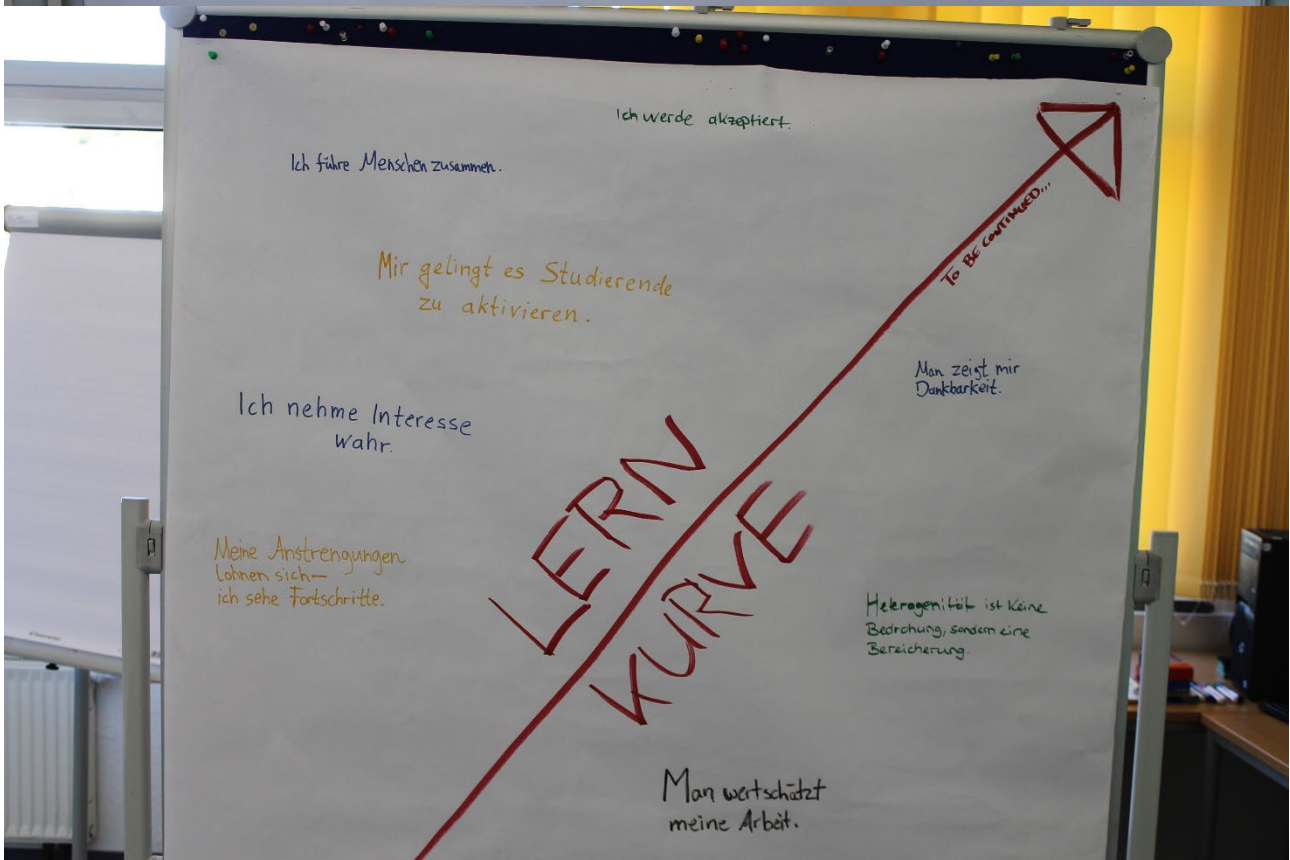 Ich werde akzeptiert.
Ich führe Menschen zusammen.
Mir gelingt es Studierende
zu aktivieren.
TO BE CONTINUED...
Man zeigt mir
Dankbarkeit.
Ich nehme Interesse
wahr.
LERN
KURVE
Meine Anstrengungen
lohnen sich—
ich sehe Fortschritte.
Heterogenität ist keine
Bedrohung, sondern eine
Bereicherung.
Man wertschätzt
meine Arbeit.